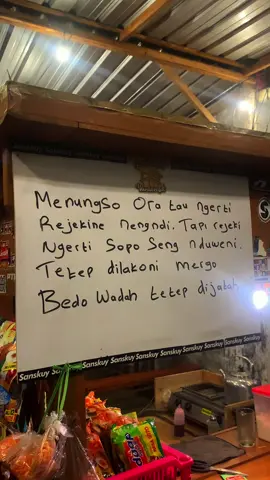 Menungso Ora tau ngerti
Rejekine nengndi. Tapi rejeki
Ngerti Sopo Seng nduweni.
Tetep dilakoni mergo
Bedo Wadah tetep dijatah
Sanskuy Sanskuy Sanskuy Sanskuy Sanskuy Sanskuy